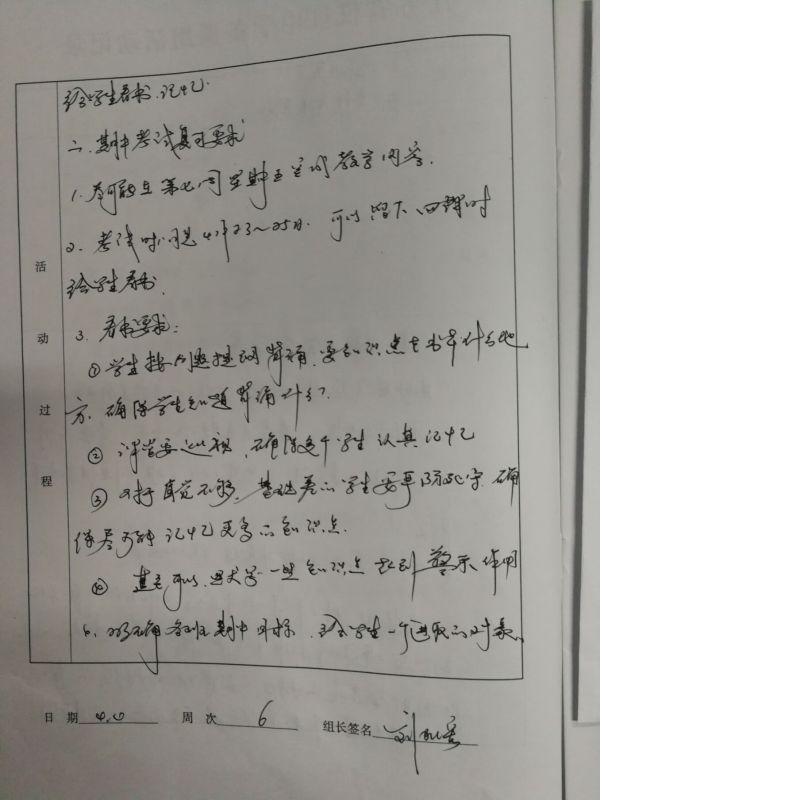 给学生看书、记忆.
二、期中考试复习要求
1. 尽可能在第七周星期五完成教学内容.
2. 考试时间是4月23~25日. 可以留下四课时
给学生看书.
3. 看书要求:
① 学生按问题提纲背诵, 要知识点在书本什么地
方. 确保学生知道背诵什么?
② 课堂要巡视, 确保每个学生认真记忆
③ 对于自觉不够、基础差的学生要 确
保尽可能记忆更多的知识点.
④ 甚至可以 一些知识点 起到警示作用
6、明确各班期中目标, 给学生一个进取的对象.
活动过程
日 期 4.6 周 次 6 组长签名 刘